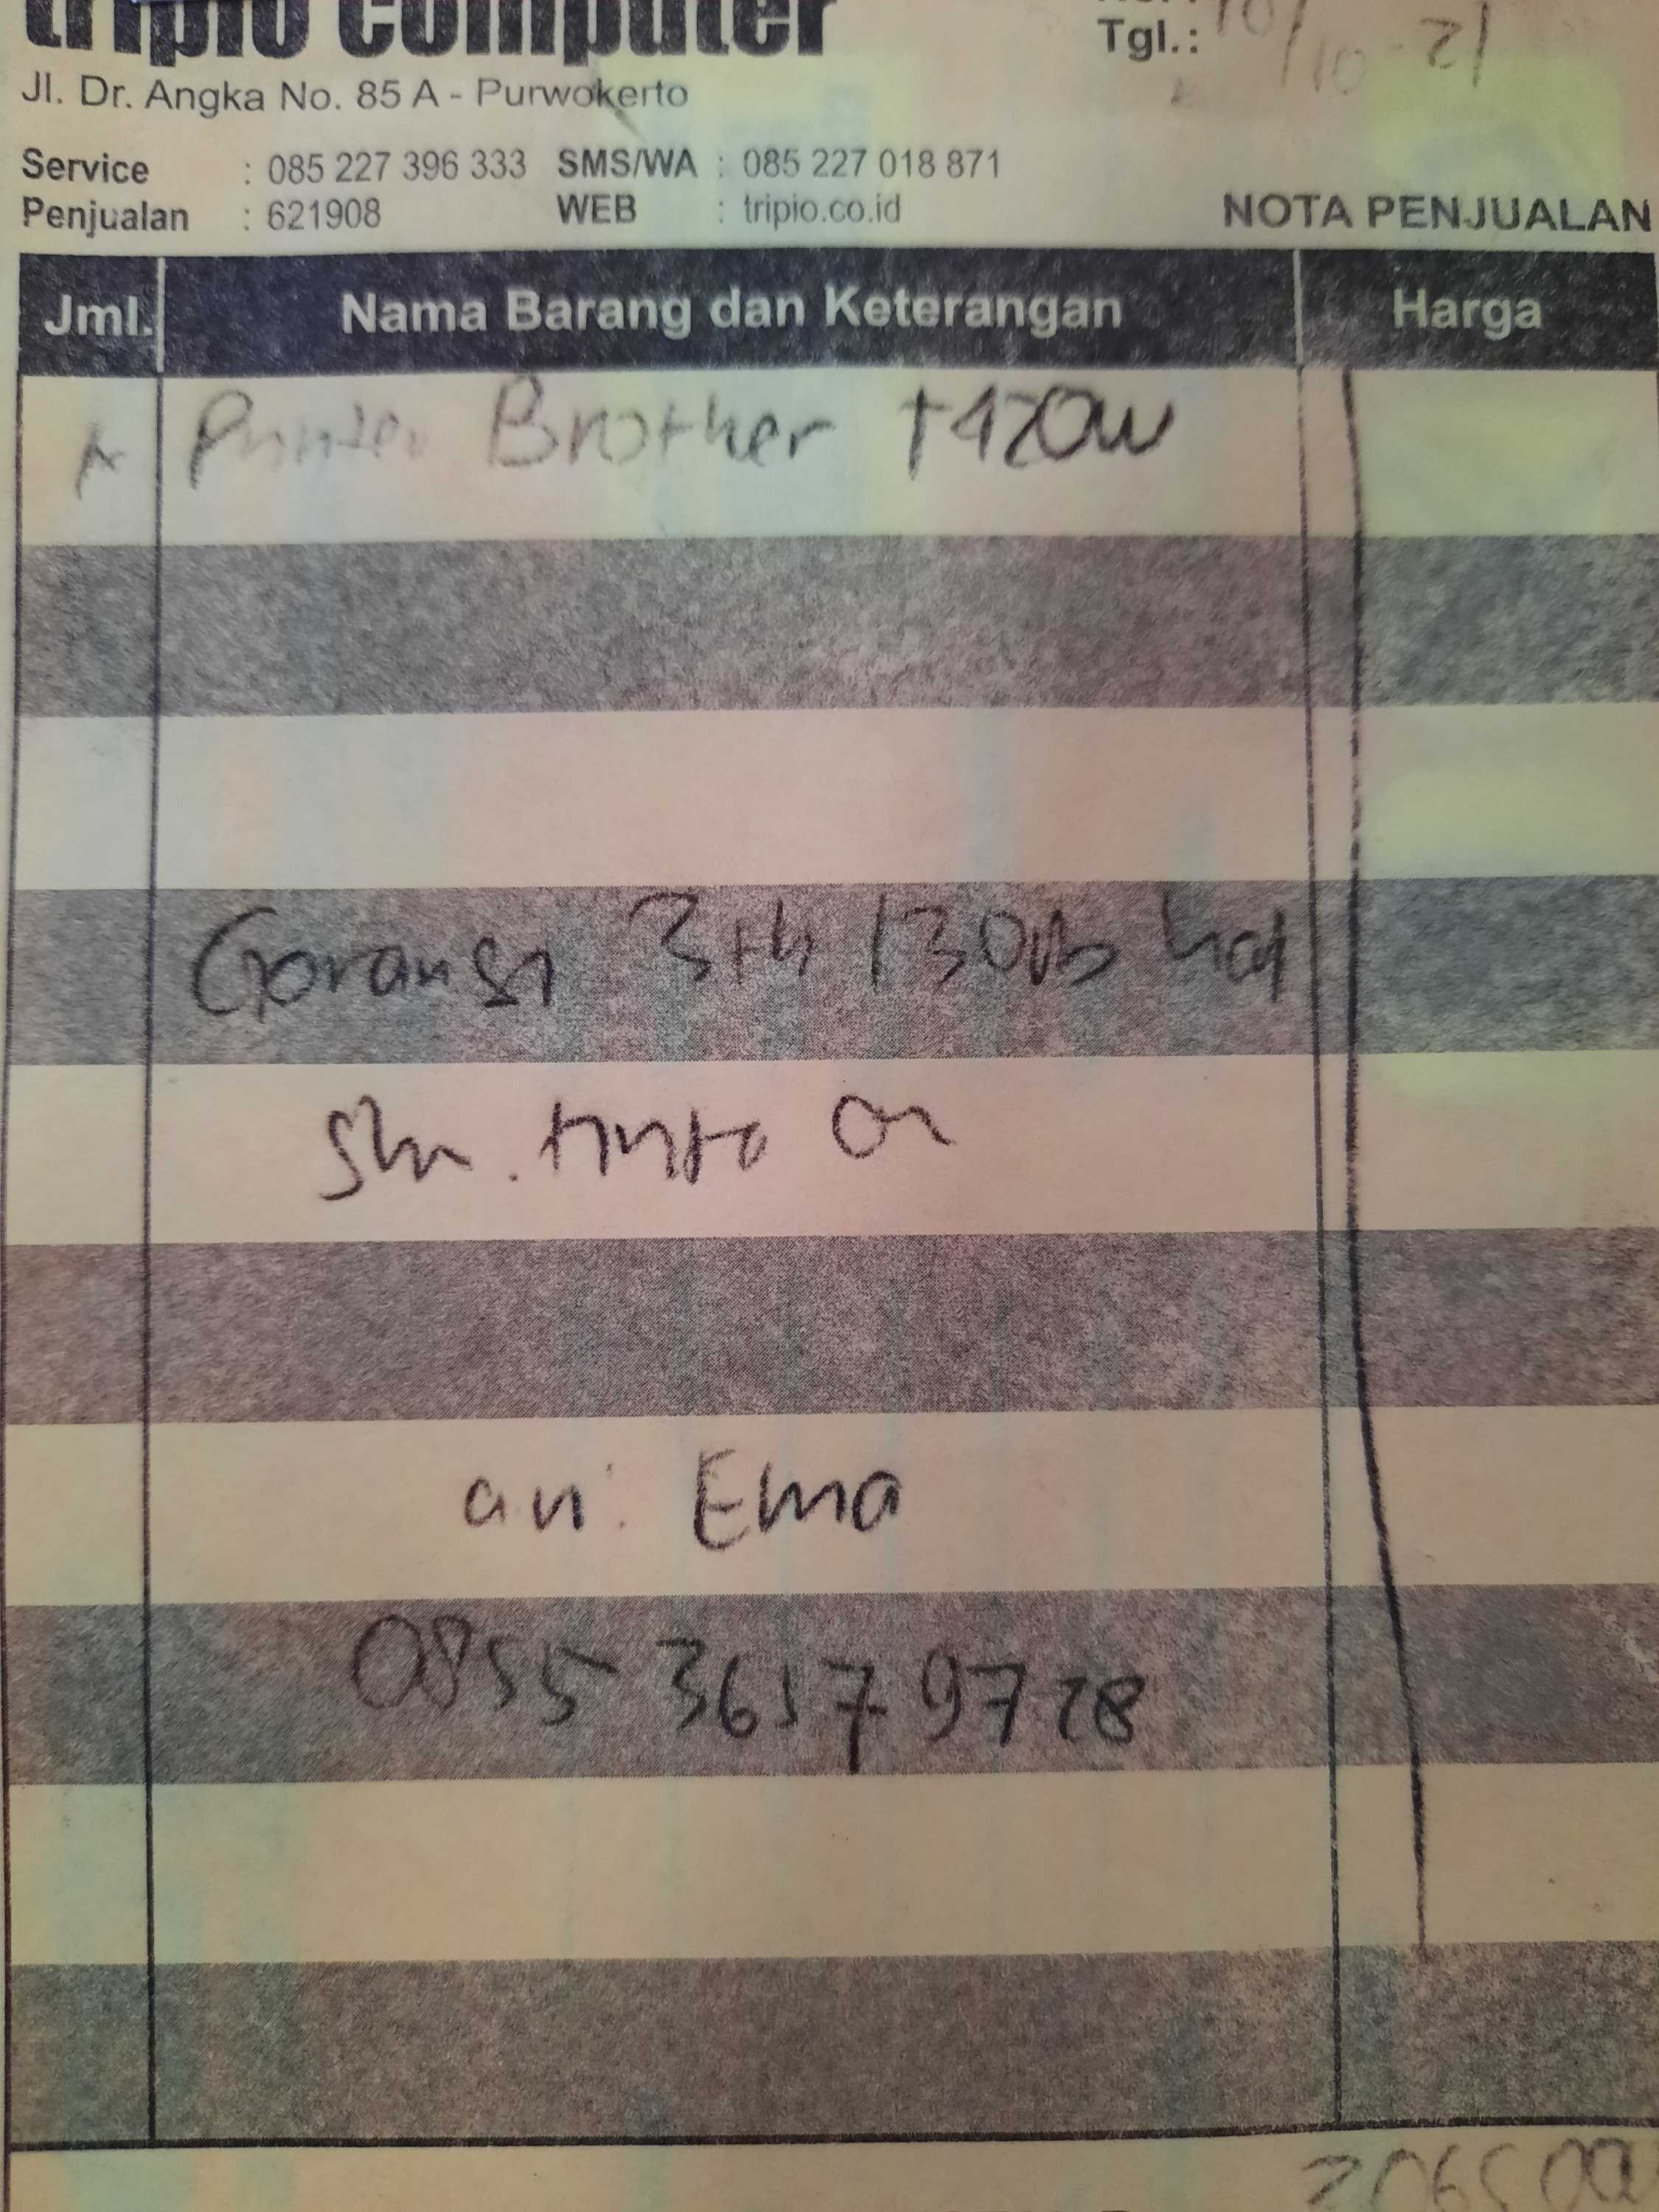 tripio computer
Tgl.: 10/10-21
Jl. Dr. Angka No. 85 A - Purwokerto
Service : 085 227 396 333 SMS/WA : 085 227 018 871
Penjualan : 621908 WEB : tripio.co.id
NOTA PENJUALAN
Jml. Nama Barang dan Keterangan Harga
1 Printer Brother T420W
Garansi 3th / 30rb hal
tinta ori
an: Ema
0855 3657 9728